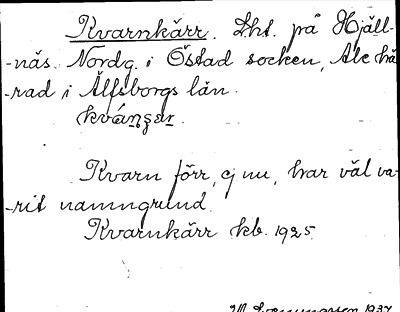 Kvarnkärr. Lht. på Hjäll-
-näs Nordg. i Östad socken, Ale hä
-rad i Älfsborgs län.
kváɳʂar.
Kvarn förr, ej nu, har väl va-
-rit namngrund.
Kvarnkärr kb. 1925
1937